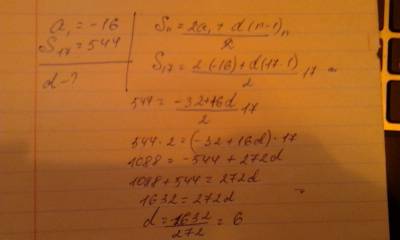 a₁ = -16
S₁₇ = 544
d - ?
Sₙ = 2a₁ + d(n-1) / 2 n
S₁₇ = 2(-16) + d(17-1) / 2 17 =
544 = -32+16d / 2 17
544 · 2 = (-32 + 16d) · 17
1088 = -544 + 272d
1088 + 544 = 272d
1632 = 272d
d = 1632 / 272 = 6